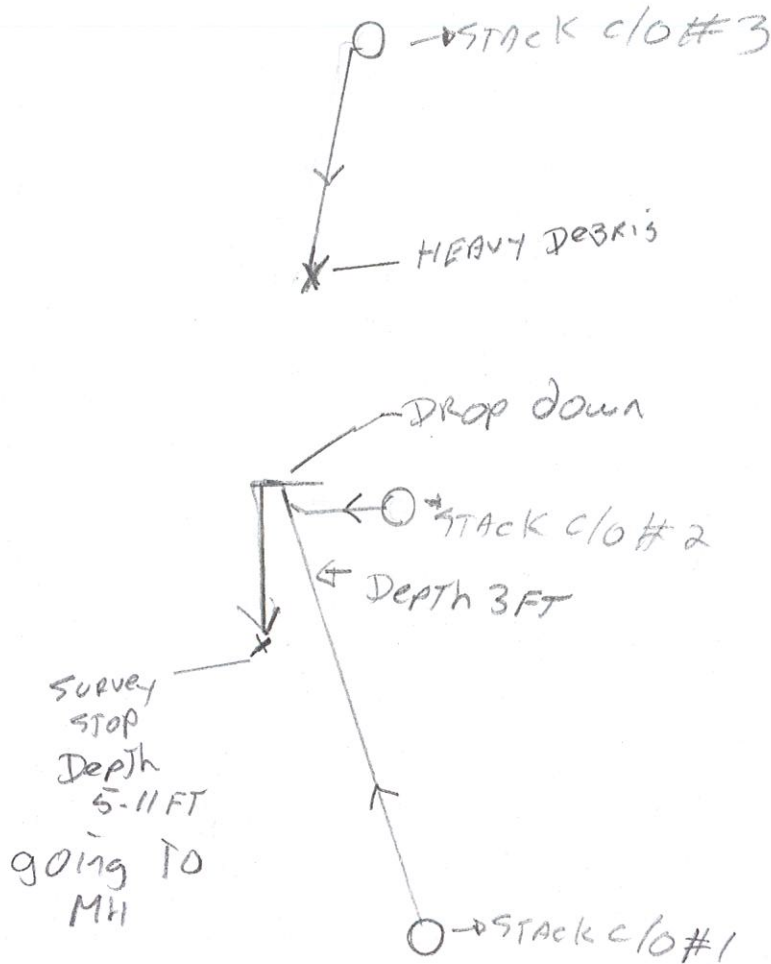 STACK C/O #3
HEAVY DEBRIS
DROP down
STACK C/O #2
Depth 3 FT
SURVEY
STOP
Depth
5-11 FT
going TO
MH
STACK C/O #1